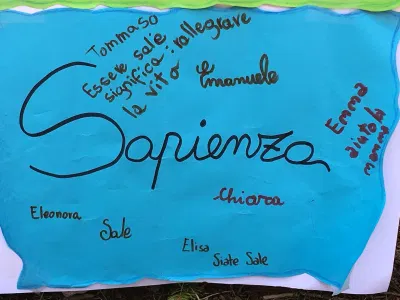 Tommaso
Essere sale
significa: rallegrare
la vita
Emanuele
Emma
aiuto la
mamma
Sapienza
Chiara
Eleonora
Sale
Elisa
Siate Sale